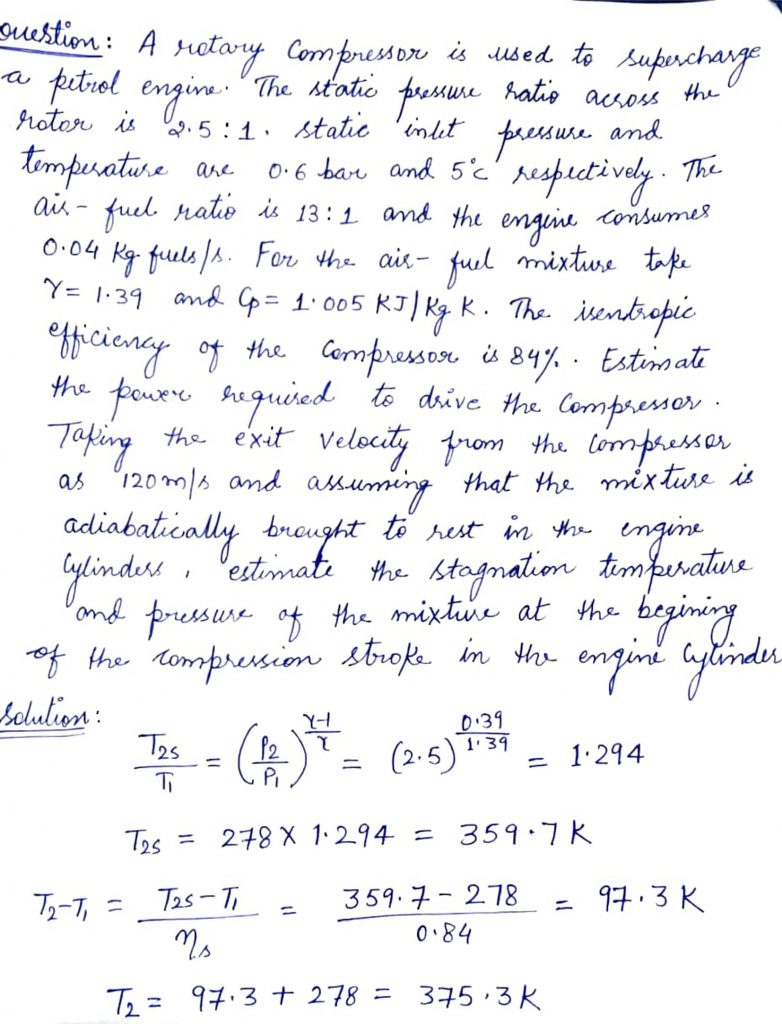 Question: A rotary Compressor is used to supercharge
a petrol engine. The static pressure ratio across the
rotor is 2.5:1. static inlet pressure and
temperature are 0.6 bar and 5°c respectively. The
air-fuel ratio is 13:1 and the engine consumes
0.04 Kg fuels/s. For the air-fuel mixture take
γ = 1.39 and Cp = 1.005 KJ/Kg K. The isentropic
efficiency of the Compressor is 84%. Estimate
the power required to drive the Compressor.
Taking the exit velocity from the Compressor
as 120 m/s and assuming that the mixture is
adiabatically brought to rest in the engine
Cylinders, estimate the stagnation temperature
and pressure of the mixture at the begining
of the compression stroke in the engine Cylinder
Solution:
T2s/T1 = (P2/P1)^((γ-1)/γ) = (2.5)^(0.39/1.39) = 1.294
T2s = 278 X 1.294 = 359.7 K
T2-T1 = (T2s-T1)/ηs = (359.7-278)/0.84 = 97.3 K
T2 = 97.3 + 278 = 375.3K